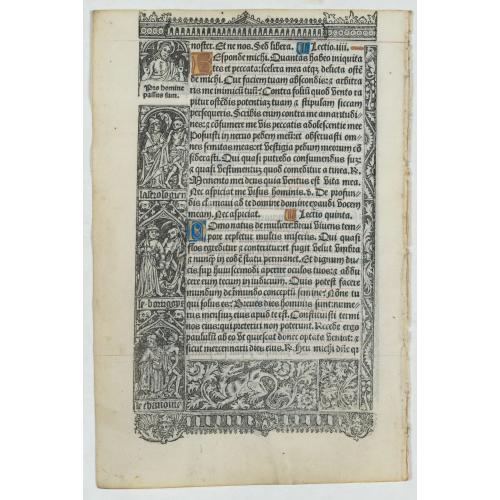 noster. Et ne nos. Sed libera. Lectio.iiii.
Responde michi. Quantas habeo iniquita
tes et peccata: scelera mea atq; delicta oste
de michi. Cur faciem tuam abscondis: & arbitra
ris me inimicu tuu: Contra foliu quod vento ra
pitur ostedis potentia tuam & stipulam siccam
persequeris. Scribis enim contra me amaritudi
nes: & cosumere me vis peccatis adolescentie mee
Posuisti in neruo pedem meu: et obseruasti om-
nes semitas meas: et vestigia pedum meorum co
siderasti. Qui quasi putredo consumendus su:
& quasi vestimentu quod comeditur a tinea. R.
Memento mei deus quia ventus est vita mea.
Nec aspiciat me visus hominis. v. De profun-
dis clamaui ad te domine domine exaudi vocem
meam. Nec aspiciat. Lectio quinta.
Homo natus de muliere: breui viuens tem-
pore repletur multis miseriis. Qui quasi
flos egreditur & conteritur: et fugit velut vmbra
& nunq in eode statu permanet. Et dignum du-
cis sup huiuscemodi aperire oculos tuos: & addu
cere eum tecum in iudicium. Quis potest facere
mundum de imundo conceptu semine: None tu
qui solus es: Breues dies hominis sunt: nume-
rus mensiu eius apud te est. Constituisti termi
nos eius: qui pteriri non poterunt. Recede ergo
paululu ab eo vt quiescat donec optata veniat: &
sicut mercennarii dies eius. R. Heu michi dne q
Pro homine
passus sum.
lastrologien
le bourgoys
le chanoine